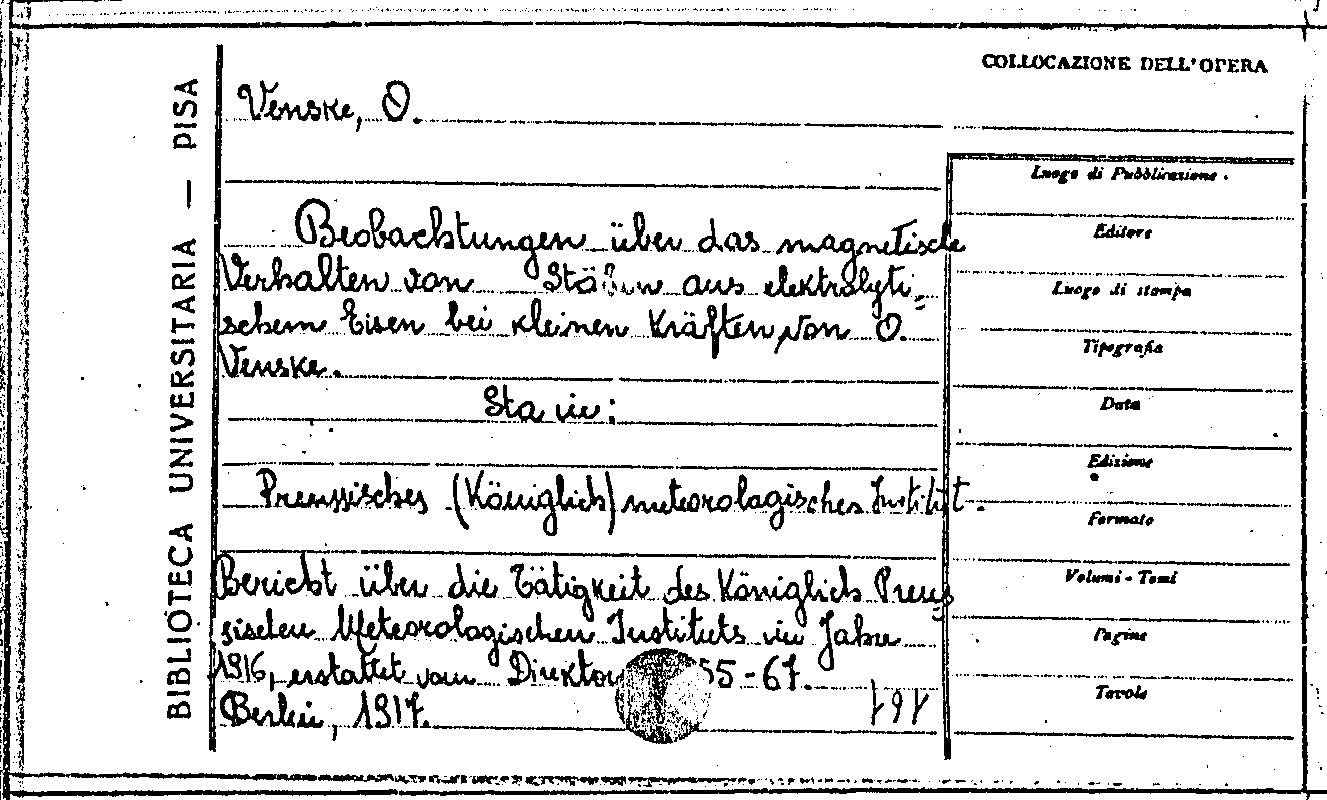 COLLOCAZIONE DELL'OPERA
BIBLIOTECA UNIVERSITARIA — PISA
Venske, O.
Beobachtungen über das magnetische
Verhalten von Stäben aus elektrolyti=
schem Eisen bei kleinen Kräften, von O.
Venske.
Sta in:
Preussisches (Königlich) meteorologisches Institut.
Bericht über die Tätigkeit des Königlich Preus=
sischen Meteorologischen Instituts im Jahre
1916, erstattet vom Direktor 55-67.
Berlin, 1917.
Luogo di Pubblicazione.
Editore
Luogo di stampa
Tipografia
Data
Edizione
Formato
Volumi - Tomi
Pagine
Tavole